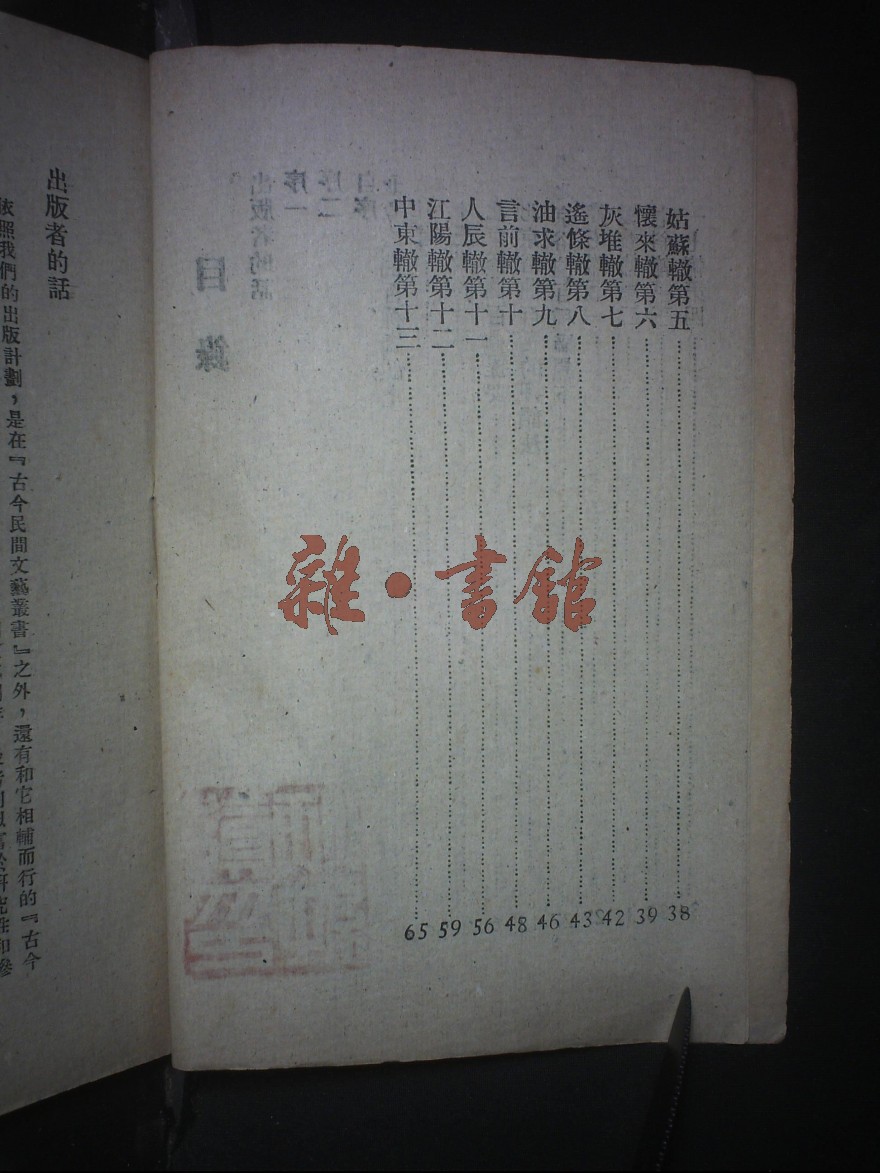 姑蘇轍第五 38
懷來轍第六 39
灰堆轍第七 42
遙條轍第八 43
油求轍第九 46
言前轍第十 48
人辰轍第十一 56
江陽轍第十二 59
中東轍第十三 65
雜·書館
目錄
出版者的話
序一
序二
自序
出版者的話
依照我們的出版計劃，是在『古今民間文藝叢書』之外，還有和它相輔而行的『古今